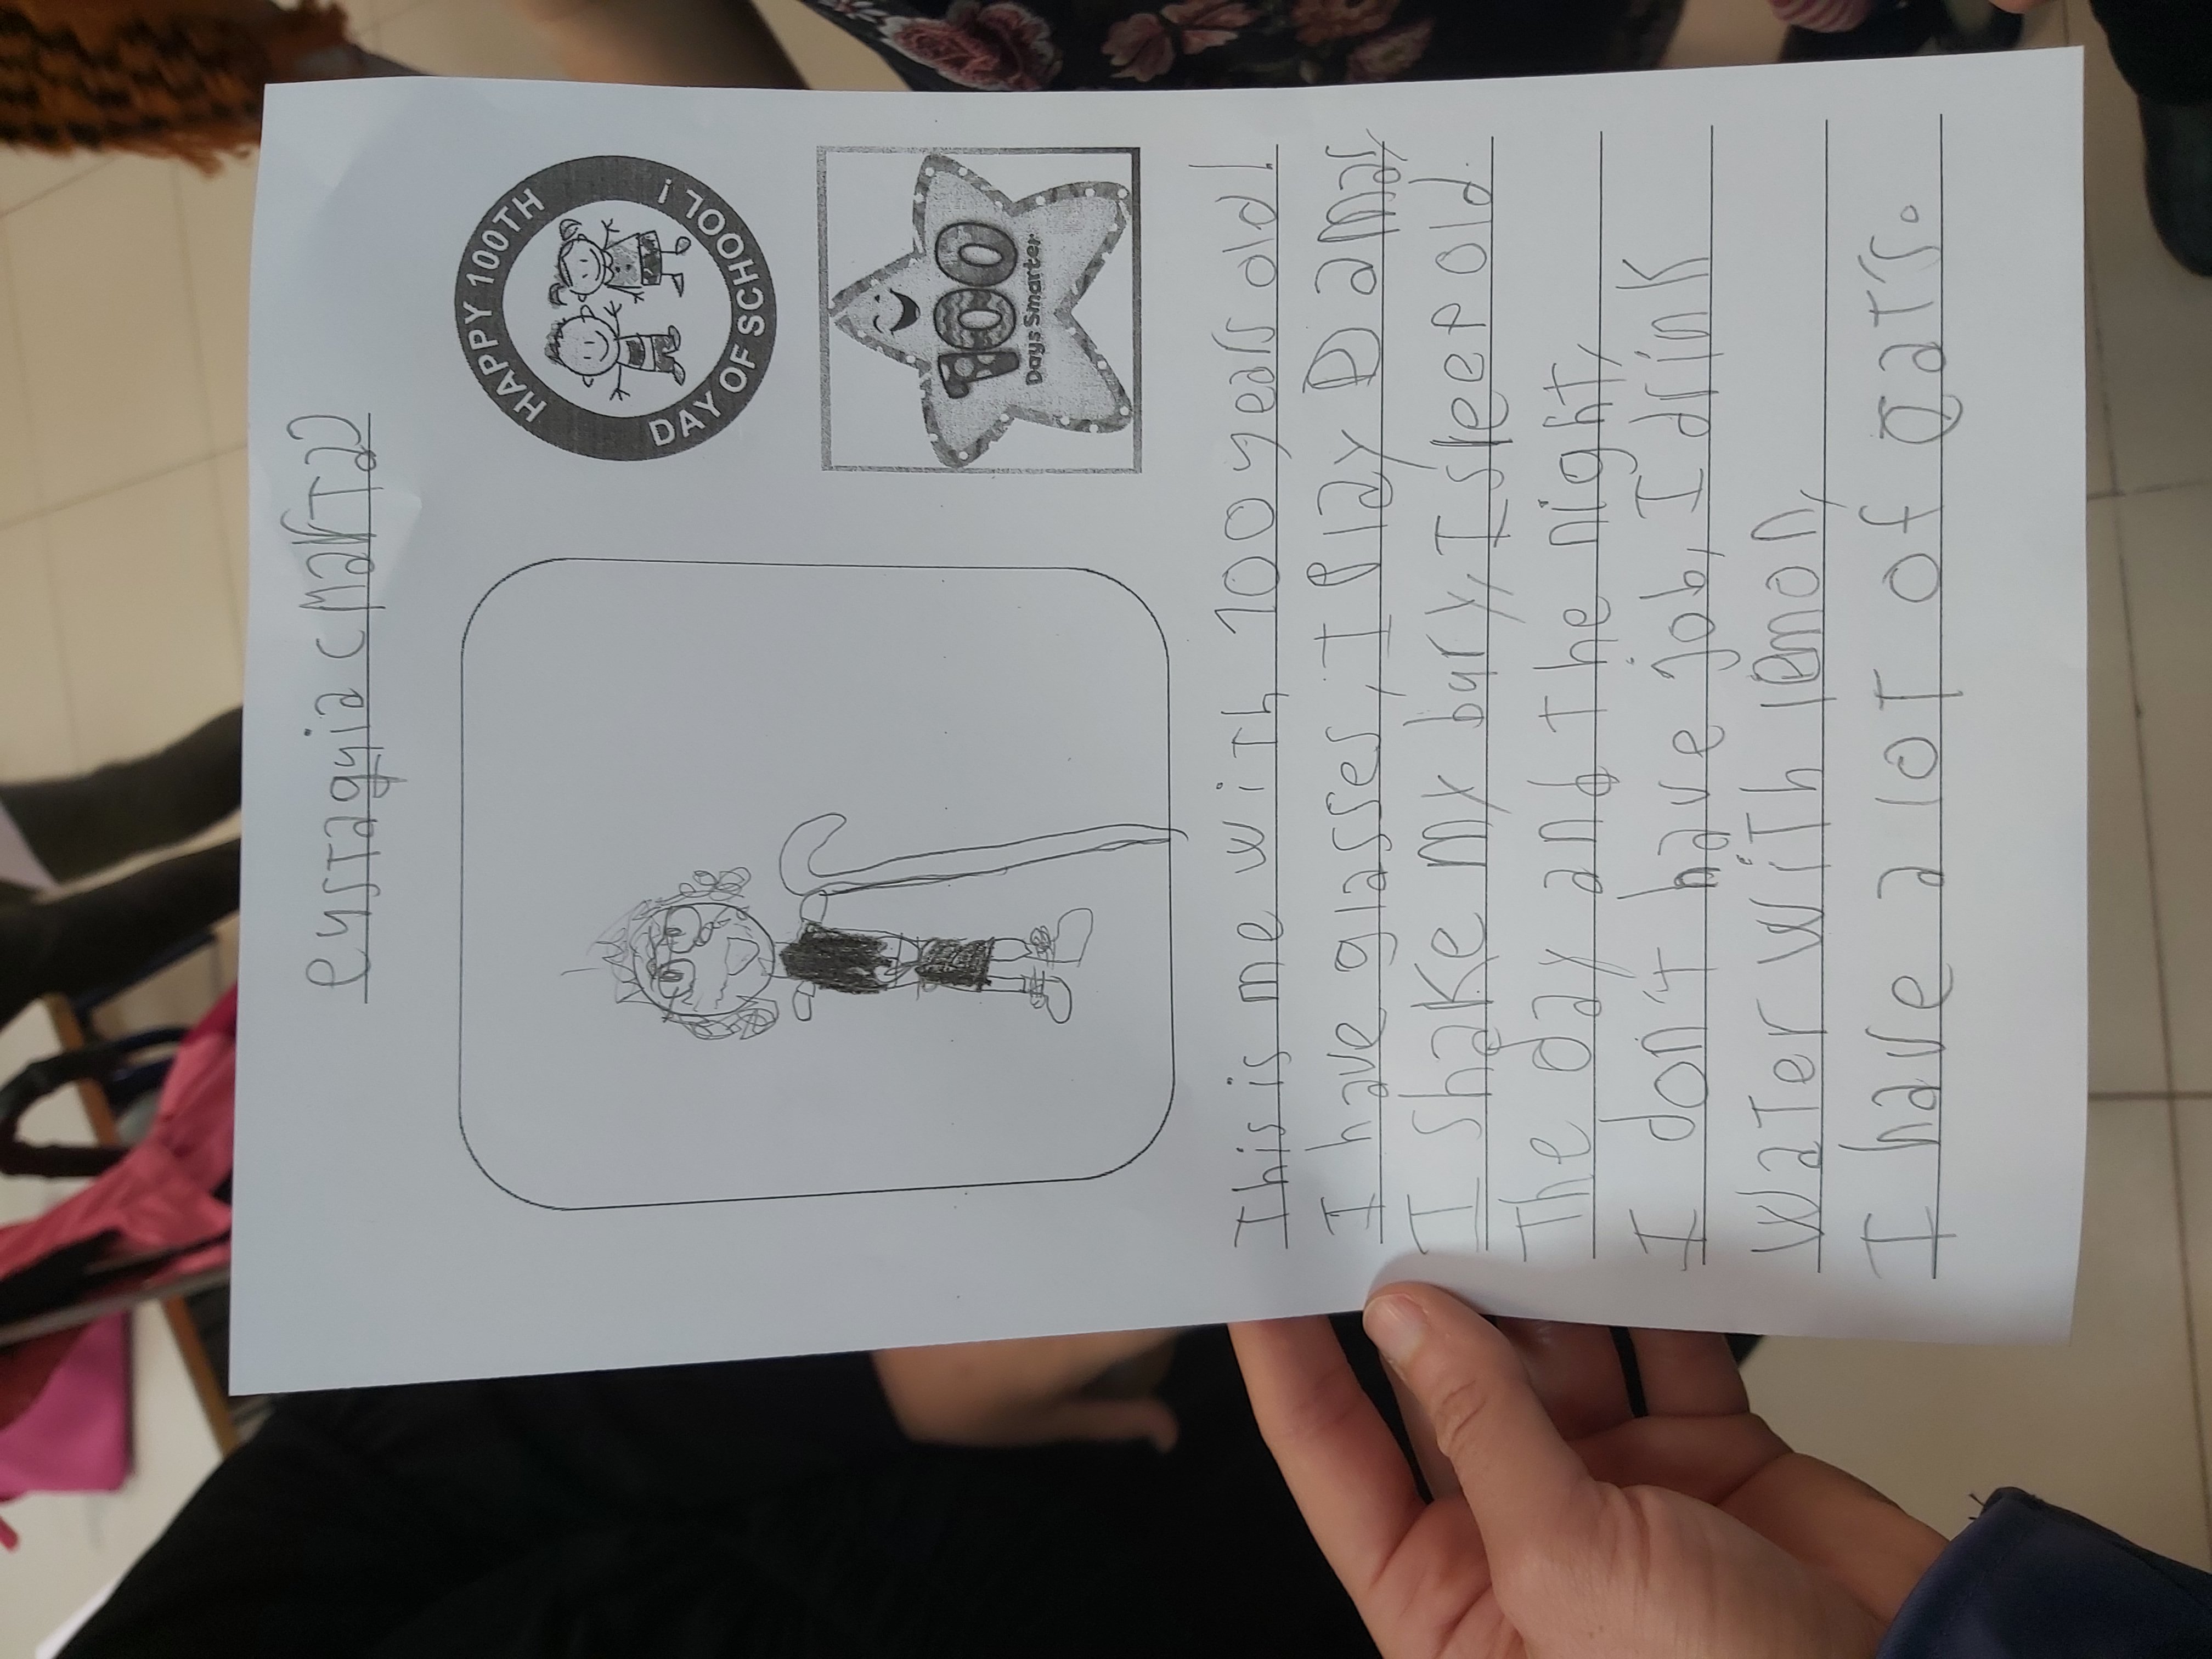 eustaquia (MARTA)
HAPPY 100TH
DAY OF SCHOOL!
100
Days Smarter
This is me with 100 years old!
I have glasses, I play Dames,
I shake my bury, I sleep old
The day and the night,
I don't have job, I drink
water with lemon,
I have a lot of Qats.